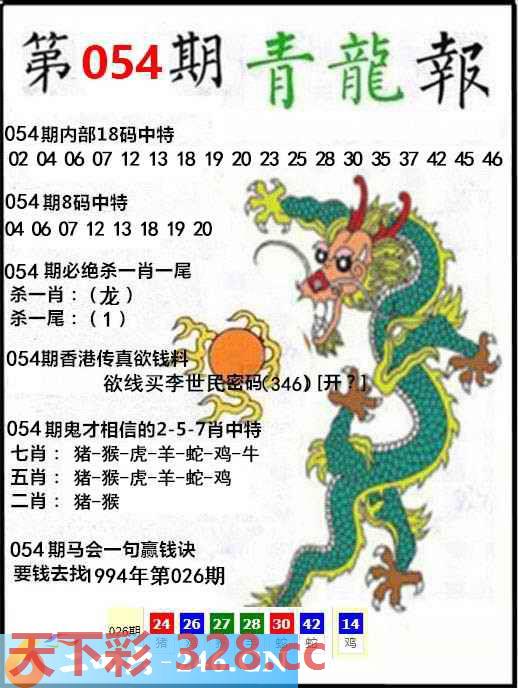 第054期青龍報
054期内部18码中特
02 04 06 07 12 13 18 19 20 23 25 28 30 35 37 42 45 46
054期8码中特
04 06 07 12 13 18 19 20
054期必绝杀一肖一尾
杀一肖：（龙）
杀一尾：（1）
054期香港传真欲钱料
欲线买李世民密码(346)[开？]
054期鬼才相信的2-5-7肖中特
七肖：猪-猴-虎-羊-蛇-鸡-牛
五肖：猪-猴-虎-羊-蛇-鸡
二肖：猪-猴
054期马会一句赢钱诀
要钱去找1994年第026期
026期 24 26 27 28 30 42 14
猪 蛇 蛇 鸡
天下彩-328.cc